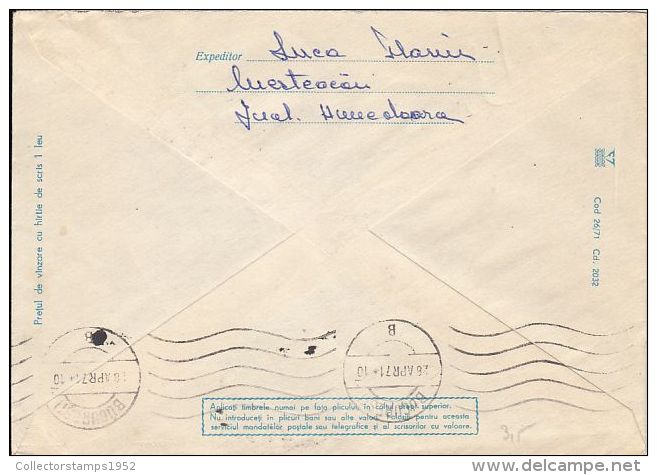 Expeditor Luca
Mesteacăn
Jud. Hunedoara
Prețul de vînzare cu hîrtie de scris 1 leu
Cod 26/71 Cd. 2032
B
28 APR 71 * 10
BUCUREȘTI
B
28 APR 71 * 10
Aplicați timbrele numai pe fața plicului, în colțul drept superior.
Nu introduceți în plicuri bani sau alte valori. Folosiți pentru aceasta
serviciul mandatelor poștale sau telegrafice și al scrisorilor cu valoare.
3,5
Collectorstamps1952
delcampe.net